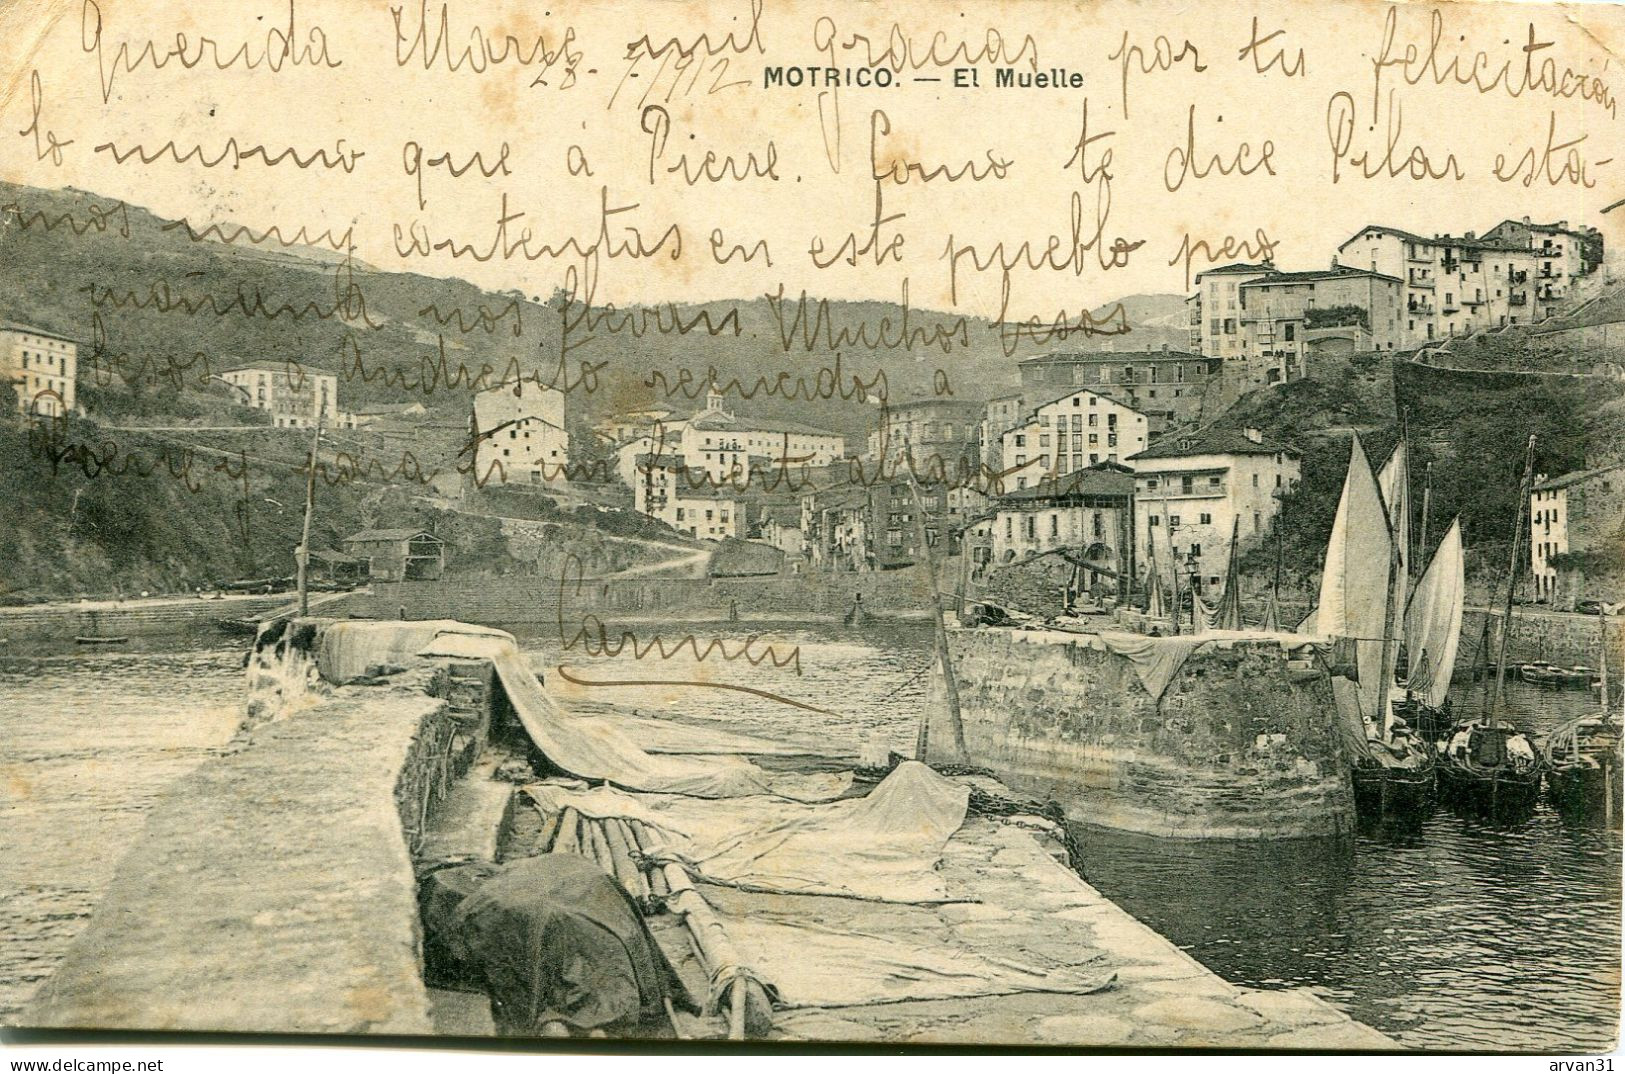 Querida Marie mil gracias por tu felicitación
28-7/912 MOTRICO. — El Muelle
lo mismo que á Pierre. Como te dice Pilar esta-
mos muy contentas en este pueblo pero
mañana nos llevan. Muchos besos
besos á Andresito recuerdos a
Pierre y para ti un fuerte abrazo
Carmen
www.delcampe.net
arvan31